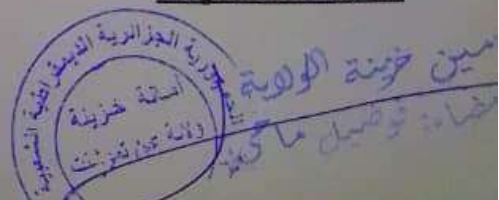 الجمهورية الجزائرية الديمقراطية الشعبية
أمانة خزينة
ولاية عين تموشنت
أمين خزينة الولاية
إمضاء: